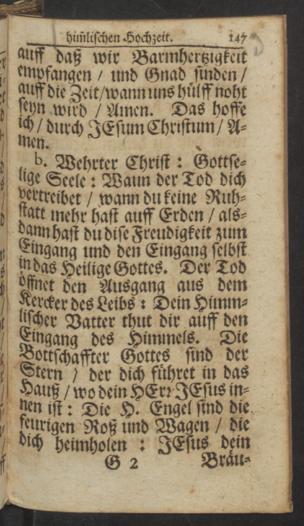 him̃lischen Hochzeit. 147
auff daß wir Barmhertzigkeit
empfangen / und Gnad finden /
auff die Zeit / wann uns hülff noht
seyn wird / Amen. Das hoffe
ich / durch JEsum Christum / A-
men.
b. Wehrter Christ : Gottse-
lige Seele : Wann der Tod dich
vertreibet / wann du keine Ruh-
statt mehr hast auff Erden / als-
dann hast du dise Freudigkeit zum
Eingang und den Eingang selbst
in das Heilige Gottes. Der Tod
öffnet den Ausgang aus dem
Kercker des Leibs : Dein Himm-
lischer Vatter thut dir auff den
Eingang des Himmels. Die
Bottschaffter Gottes sind der
Stern / der dich führet in das
Hauß / wo dein HErr JEsus in-
nen ist : Die H. Engel sind die
feurigen Roß und Wagen / die
dich heimholen : JEsus dein
G 2 Bräu-